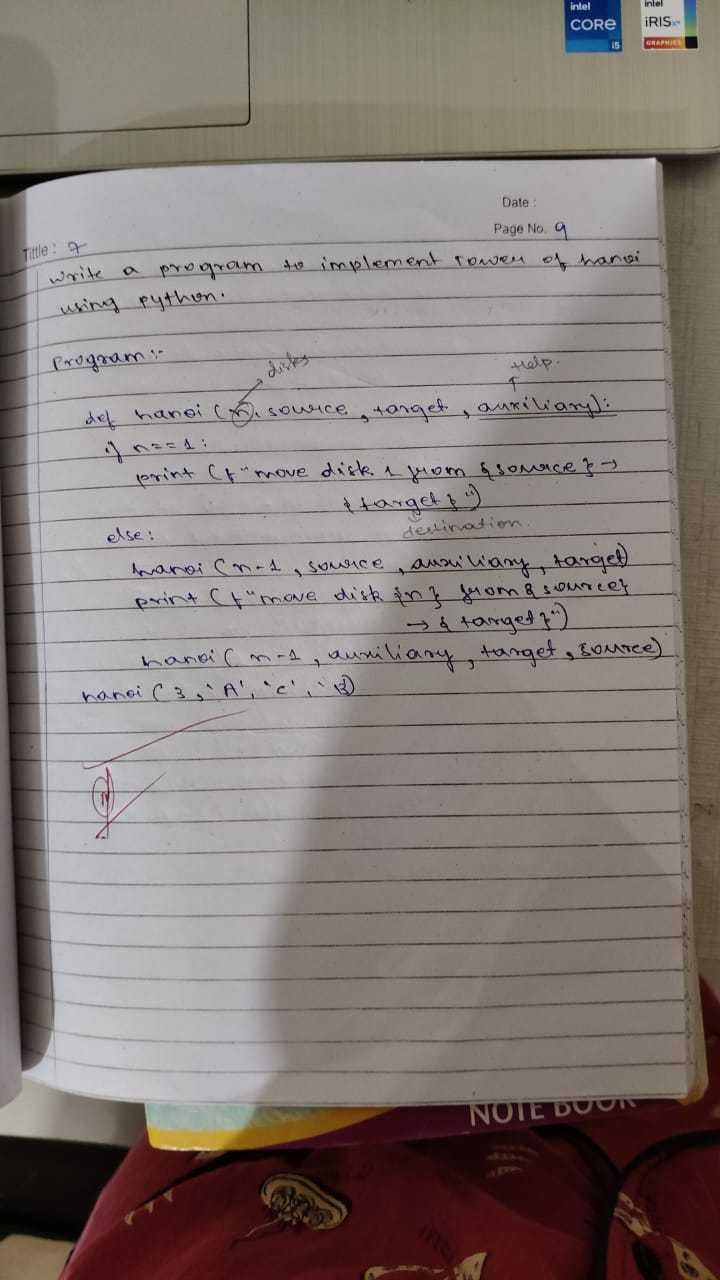 intel
CORE
i5
intel
iRIS xe
GRAPHICS
Date :
Page No. 9
Tittle : 7
write a program to implement Tower of hanoi
using python.
Program :-
disks
Help.
def hanoi (n, source, target, auxiliary):
if n==1:
print (f"move disk 1 from {source} →
{target}")
destination
else:
hanoi (n-1, source, auxiliary, target)
print (f"move disk {n} from {source}
→ {target}")
hanoi (n-1, auxiliary, target, source)
hanoi (3, 'A', 'C', 'B)
NOTE BOOK